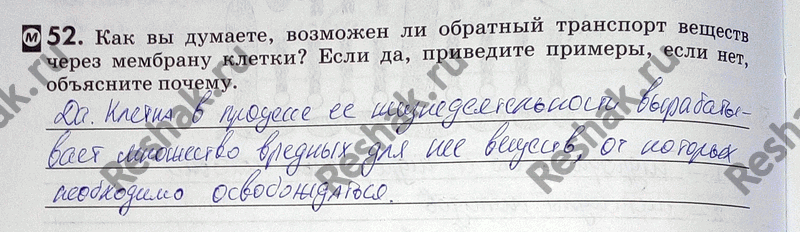 м 52. Как вы думаете, возможен ли обратный транспорт веществ
через мембрану клетки? Если да, приведите примеры, если нет,
объясните почему.
Да. Клетка в процессе ее жизнедеятельности вырабаты-
вает множество вредных для нее веществ, от которых
необходимо освобождаться.
Reshak.ru
Reshak.ru
Reshak.ru
Reshak.ru
Reshak.ru